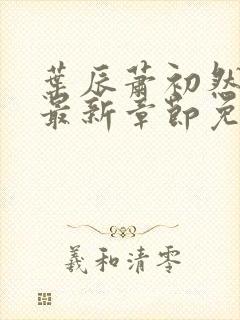 葉辰蕭初然
最新章節免
羲和清零